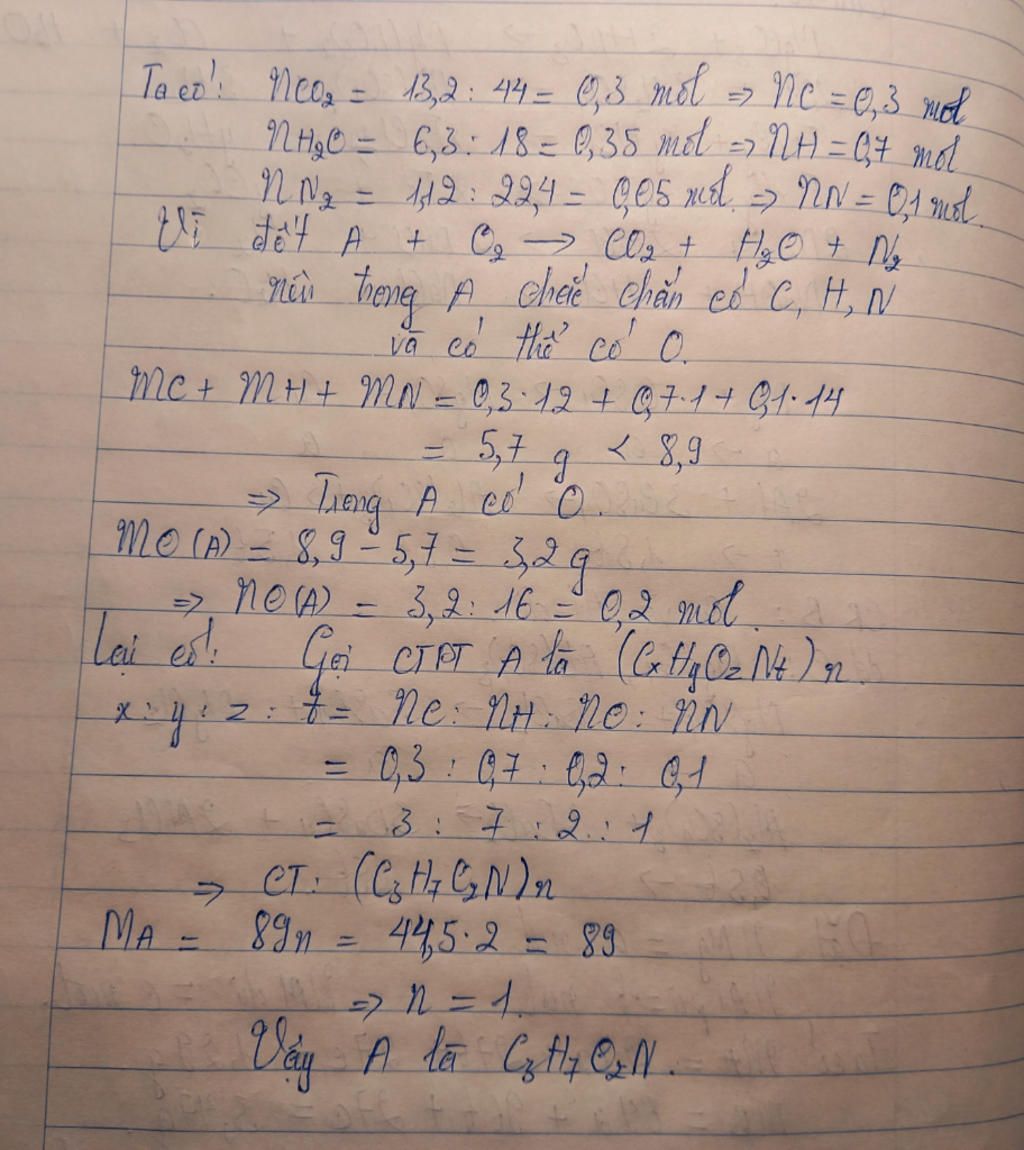 Ta có: nCO₂ = 13,2 : 44 = 0,3 mol ⇒ nC = 0,3 mol
nH₂O = 6,3 : 18 = 0,35 mol ⇒ nH = 0,7 mol
nN₂ = 1,12 : 22,4 = 0,05 mol. ⇒ nN = 0,1 mol.
Vì đốt A + O₂ → CO₂ + H₂O + N₂
nên trong A chắc chắn có C, H, N
và có thể có O.
mC + mH + mN = 0,3·12 + 0,7·1 + 0,1·14
= 5,7 g < 8,9
⇒ Trong A có O.
mO(A) = 8,9 - 5,7 = 3,2 g
⇒ nO(A) = 3,2 : 16 = 0,2 mol.
Lại có: Gọi CTPT A là (CxHyOzNt)n.
x : y : z : t = nC : nH : nO : nN
= 0,3 : 0,7 : 0,2 : 0,1
= 3 : 7 : 2 : 1
⇒ CT: (C₃H₇O₂N)n
MA = 89n = 44,5·2 = 89
⇒ n = 1.
Vậy A là C₃H₇O₂N.